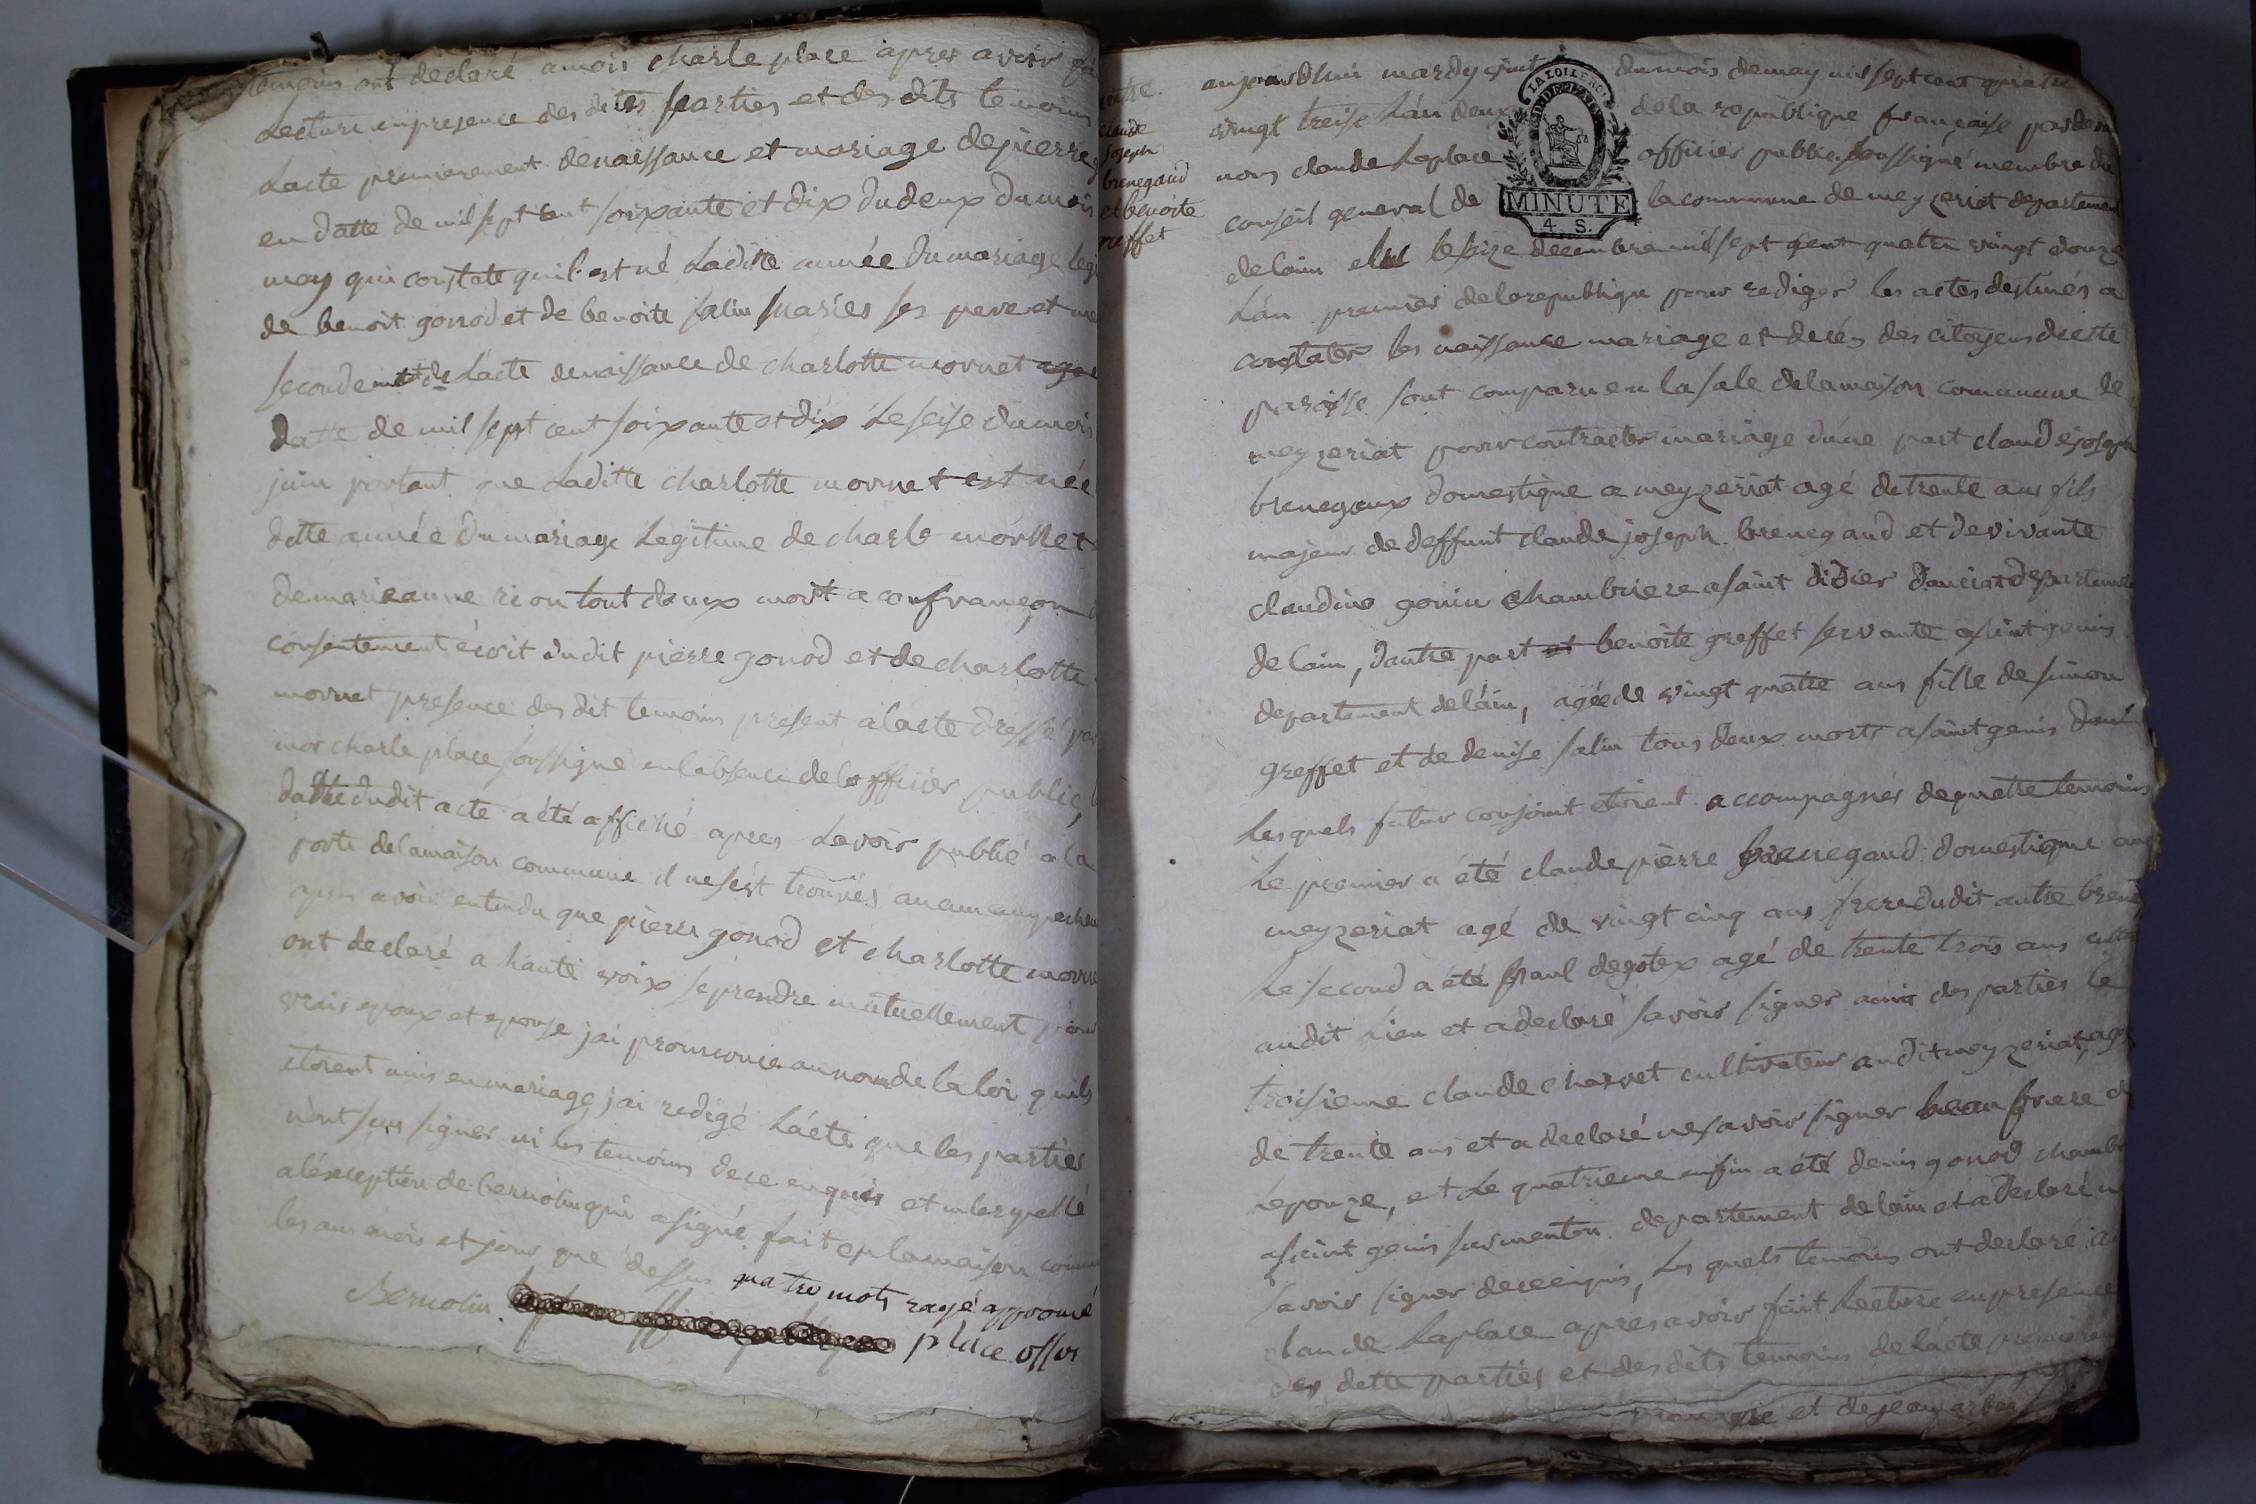 temoins ont declaré a mois charle place apres avoir
Lecture en presence des dites parties et des dits temoins
Lacte premierement de naissance et mariage de pierre
en datte de mil sept cent soixante et dix du deux du mois
may qui constate quil est né Laditte année du mariage legi
de benoit gonod et de benoite salin mariés ses pere et me
secondement de Lacte de naissance de charlotte mornet
datte de mil sept cent soixante et dix Le seise du mois
juin portant que Laditte charlotte mornet est née
ditte année du mariage Legitime de charle mornet
de marieanne rion tout deux mort a confrançon
consentement écrit du dit pierre gonod et de charlotte
mornet presence des dit temoins present a lacte dressé par
moi charle place soussigné en labsence de lofficier public,
datte dudit acte a été affiché apres Lavoir publié a la
porte de la maison commune il ne sést trouvés aucun empechem
apres avoir entendu que pierre gonod et charlotte morne
ont declaré a haute voix se prendre mutuellement pour
vrais epoux et epouse jai prononcié au nom de la loi quils
etoient unis en mariage, jai redigé Lácte que les parties
nont seu signer ni les temoins de ce enquis et interpellé
a léxception de bernolin qui a signé fait en la maison comm
les ans mois et jour que dessus quatre mots rayé approuvé
Bernolin place offer
claude
joseph
brenegaud
et benoite
greffet
LA LOI LE ROI
MINUTE
4. S.
aujourdhui mardy vint du mois de may mil sept cent quatre
vingt treise Lán deux de la republique française par de
nous claude Laplace officier public soussigné membre du
conseil general de la commune de meyzeriat departement
de lain elu le seize decembre mil sept cent quatre vingt douze
Lán premier de la republique pour rediger les actes destinés a
constater les naissance mariage et decés des citoyens de cette
paroisse sont comparu en la sale de la maison commune de
meyzeriat pour contracter mariage dúne part claude joseph
brenegaux domestique a meyzeriat agé de trente ans fils
majeur de deffunt claude joseph brenegaud et de vivante
claudine gonin chambriere a saint didier daussiat departemen
de lain, dautre part et benoite greffet servante a saint genis
departement de láin, agée de vingt quatre ans fille de simon
greffet et de denise salin tous deux morts a saint genis
Les quels futur conjoint etoient accompagnés de quatre temoins
Le premier a été claude pierre brenegaud domestique au
meyzeriat agé de vingt cinq ans frere dudit autre brene
Le second a été paul degotex agé de trente trois ans
audit Lieu et a declaré savoir signer amis des parties le
troisieme claude charvet cultivateur audit meyzeriat, agé
de trente ans et a declaré ne savoir signer beau frere de
Lepouze, et Le quatrieme enfin a été denis gonod chamb
a saint genis sur menton departement de lain et a declaré n
savoir signer de ce enquis, Les quels temoins ont declaré a
claude Laplace apres avoir fait Lecture en presence
des dette parties et des dits temoins de Lácte premiere
et de jean